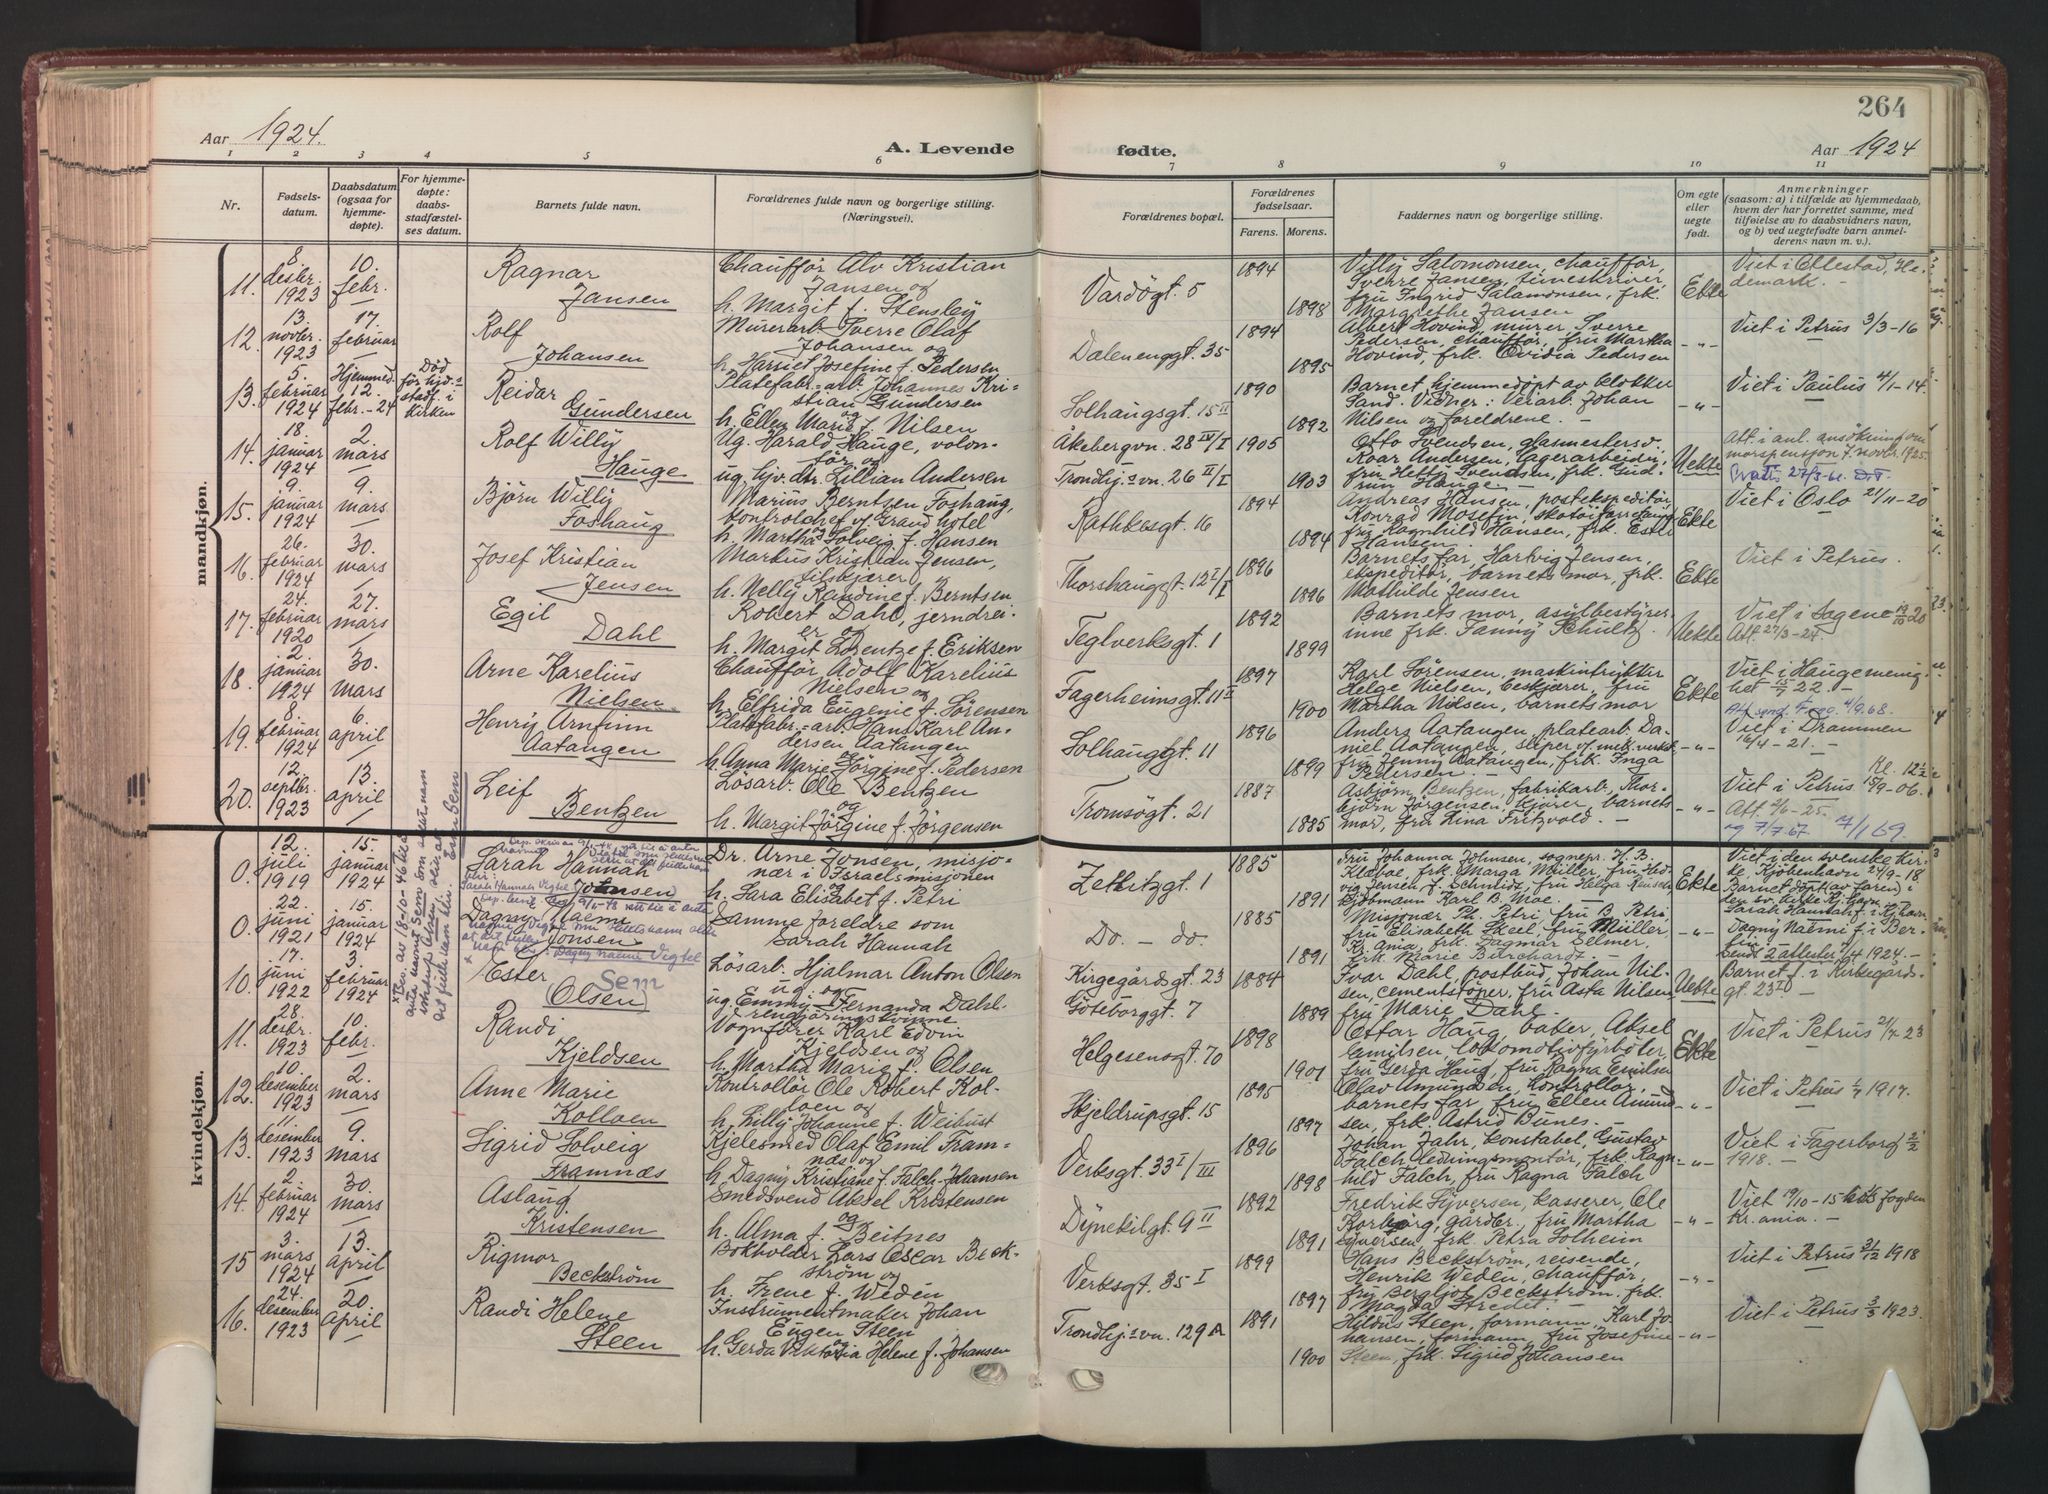 264
Aar 1924.
A. Levende
fødte.
Aar 1924
1 2 3 4 5 6 7 8 9 10 11
Nr.
Fødsels-
datum.
Daabsdatum
(ogsaa for
hjemme-
døpte).
For hjemme-
døpte:
daabs-
stadfæstel-
ses datum.
Barnets fulde navn.
Forældrenes fulde navn og borgerlige stilling.
(Næringsvei).
Forældrenes bopæl.
Forældrenes
fødselsaar.
Farens. Morens.
Faddernes navn og borgerlige stilling.
Om egte
eller
uegte
født.
Anmerkninger
(saasom: a) i tilfælde av hjemmedaab,
hvem der har forrettet samme, med
tilføielse av to daabsvidners navn,
og b) ved uegtefødte barn anmel-
derens navn m. v.).
mandkjøn.
11. 8. desbr. 1923
10. febr.
Ragnar
Jansen
Chauffør Alv Kristian
Jansen og
h. Margit f. Stensby
Vardøgt. 5
1894
1898
Villy Salomonsen, chauffør,
Sverre Jansen, timeskriver,
fru Ingrid Salamonsen, frk.
Margrethe Jansen
Ekte
Viet i Ellestad, He-
demark. -
12. 13. novbr. 1923
17. februar
Rolf
Johansen
Murerarb. Sverre Olaf
Johansen og
h. Harriet Josefine f. Pedersen
Dalenenggt. 35
1894
1895
Albert Hovind, murer, Sverre
Pedersen, chauffør, fru Martha
Hovind, frk. Ovidia Pedersen
-"-
Viet i Petrus 3/3-16
13. 5. februar 1924
Hjemmed. 12. febr.-24
Død
før hjd.
stadf. i
kirken
Reidar
Gundersen
Platefabr.-arb. Johannes Kri-
stian Gundersen
og
h. Ellen Marie f. Nilsen
Solhaugsgt. 15 II
1890
1892
Barnet hjemmedøpt av klokker
Sand. Vidner: Veiarb. Johan
Nilsen og foreldrene. -
-"-
Viet i Paulus 4/1-14.
14. 18. januar 1924
2. mars
Rolf Willy
Hauge
Ug. Harald Hauge, volon-
tør og
ug. hjv. dtr. Lillian Andersen
Åkebergvn. 28 IV/I
Trondhj.svn. 26 II/I
1905
1903
Otto Svendsen, glasmestersv.
Roar Andersen, lagerarbeider,
fru Hetty Svendsen, frk. Gud-
run Hauge -
Uekte
Att. i anl. ansøkning om
morspensjon 7. novbr. 1925.
Gratis 27/3-61.
15. 9. januar 1924
9. mars
Bjørn Willy
Foshaug
Marius Berntzen Foshaug,
kontrolchef v/ Grand hotel
og
h. Martha Solveig f. Hansen
Rathkesgt. 16
1894
1894
Andreas Hansen, postekspeditør,
Konrad Mosefin, skotøiforretning
fru Ragnhild Hansen, frk. Ester
Hansen. -
Ekte
Viet i Oslo 21/11-20
16. 26. februar 1924
30. mars
Josef Kristian
Jensen
Markus Kristian Jensen,
tilskjærer,
h. Nelly Randine f. Berntsen
Thorshauggt. 12 I/I
1896
1896
Barnets far, Hartvig Jensen,
ekspeditør, barnets mor, frk.
Mathilde Jensen
Ekte
Viet i Petrus.
17. 24. februar 1920
27. mars
Egil
Dahl
Robert Dahl, jerndrei-
er og
h. Margit Lorentze f. Eriksen
Teglverksgt. 1
1892
1899
Barnets mor, asylbestyrer-
inne frk. Fanny Schultz.
Uekte
Viet i Sagene 19/10-20
Att. 27/3-24.
18. 2. januar 1924
30. mars
Arne Karelius
Nielsen
Chauffør Adolf Karelius
Nielsen og
h. Elfrida Eugenie f. Sørensen
Fagerheimsgt. 11 II
1897
1900
Karl Sørensen, maskintrykker
Helge Nielsen, beskjærer, fru
Martha Nilsen, barnets mor
Ekte
Viet i Haugemenig-
het 15/7 22. -
Att. send. 4/9.68.
19. 8. februar 1924
6. april
Henry Arnfinn
Aatangen
Platefabr.-arb. Hans Karl An-
dersen Aatangen
og
h. Anna Marie Jørgine f. Pedersen
Solhauggt. 11
1896
1899
Anders Aatangen, platearb. Da-
niel Aatangen, sliper v/ mek. verkst.
fru Jenny Aatangen, frk. Inga
Pedersen. -
-"-
Viet i Drammen
16/4-21. -
20. 12. septbr. 1923
13. april
Leif
Bentzen
Løsarb. Ole Bentzen
og
h. Margit Jørgine f. Jørgensen
Tromsøgt. 21
1887
1885
Asbjørn Bentzen, fabrikarb., Thor-
bjørn Jørgensen, kjører, barnets
mor, fru Lina Fritzvold. -
-"-
Kl. 12 1/2
Viet i Petrus 15/9-06.
Att. 2/6-25.
og 7/7.67 7/1 69.
kvindekjøn.
0. 12. juli 1919
15. januar 1924
Sarah Hannah
Johnsen
Dr. Arne Jonsen, misjo-
nær i Israelsmisjonen
h. Sara Elisabet f. Petri
Zetlitzgt. 1
1885
1891
Fru Johanna Johnsen, sognepr. H. B.
Klæboe, frk. Marga Müller, fru Hed-
vig Jensen f. Schmidt, fru Helga
kjøbmann Karl B. Moe. -
Ekte
Viet i den svenske kir-
ke, Kjøbenhavn 27/9-18
Barnet døpt av faren i
den sv. kirke Kj.havn. -
Sarah Hannah f. i Kj.havn
0. 22. juni 1921
15. januar 1924
Dagny Naemi
Jonsen
Dagny Naemi Vigtel
Samme foreldre som
Sarah Hannah
Do. - do.
1885
1891
Misjonær Ph. Petri, fru B. Petri,
fru Elisabeth Skeel, fru Müller
Kr.ania, frk. Dagmar Selmer,
frk. Marie Burchardt. -
-"-
Dagny Naëmi f. i Ber-
lin.
sendt 2 attester 4/4 1924. -
10. 17. juni 1922
3. februar 1924
Ester
(Olsen)
Sem
Løsarb. Hjalmar Anton Olsen
ug. og
ug. Emmy Fernanda Dahl.
rendgjøringskvinne
Kirkegårdsgt. 23
Göteborggt. 7
1884
1889
Ivar Dahl, postbud, Johan Nil-
sen, cementstøper, fru Asta Nilsen,
fru Marie Dahl. -
Uekte
Barnet f. i Kirkegårds-
gt. 23 I
11. 28. desbr. 1923
10. febr.
Randi
Kjeldsen
Vognfører Karl Edvin
Kjeldsen og
h. Martha Marie f. Olsen
Helgesensgt. 70
1898
1901
Ottar Haug, baker, Aksel
Emilsen, lokomotivfyrbøter,
fru Gerda Haug, fru Ragna Emilsen
Ekte
Viet i Petrus 21/7-23
12. 10. desember 1923
2. mars
Anne Marie
Kolloen
Kontrollør Ole Robert Kol-
loen og
h. Lilly Johanne f. Weibust
Hjeldrupsgt. 15
1895
1897
Olav Amundsen, kontrollør,
barnets far, fru Ellen Amund-
sen, frk. Astrid Bunes. -
-"-
Viet i Petrus 1/7 1917.
13. 11. desember 1923
9. mars
Sigrid Solveig
Framnæs
Kjelesmed Olaf Emil Fram-
næs og
h. Dagny Kristiane f. Falch-Johansen
Verksgt. 33 I/III
1896
1898
Johan Jahr, konstabel, Gustav
Falch, ledningsmontør, frk. Ragn-
hild Falch, fru Ragna Falch
-"-
Viet i Fagerborg 2/2
1918. -
14. 2. februar 1924
30. mars
Aslaug
Kristensen
Smedsvend Aksel Kristensen
og
h. Alma f. Beitnes
Dynekilgt. 9 II
1892
1891
Fredrik Syversen, kasserer, Ole
Korborg, gårdbr., fru Martha
Syversen, frk. Petra Solheim
-"-
Viet 19/10-15 hos fogden
Kr.ania. -
15 3. mars 1924
13. april
Rigmor
Beckstrøm
Bokholder Lars Oscar Beck-
strøm og
h. Irene f. Weden
Verksgt. 35 I
1899
1897
Hans Beckstrøm, reisende,
Henrik Weden, chauffør,
fru Bergljot Beckstrøm, frk.
Magda Stredet. -
-"-
Viet i Petrus 31/12 1918
16. 24. desember 1923
20 april
Randi Helene
Steen
Instrumentmaker Johan
Eugen Steen
og
h. Gerda Viktoria Helene f. Johansen
Trondhj.svn. 129 A
1891
1900
Hildus Steen, formann, Karl Jo-
hansen, formann, fru Josefine
Steen, frk. Sigrid Johansen
-"-
Viet i Petrus 3/3 1923.